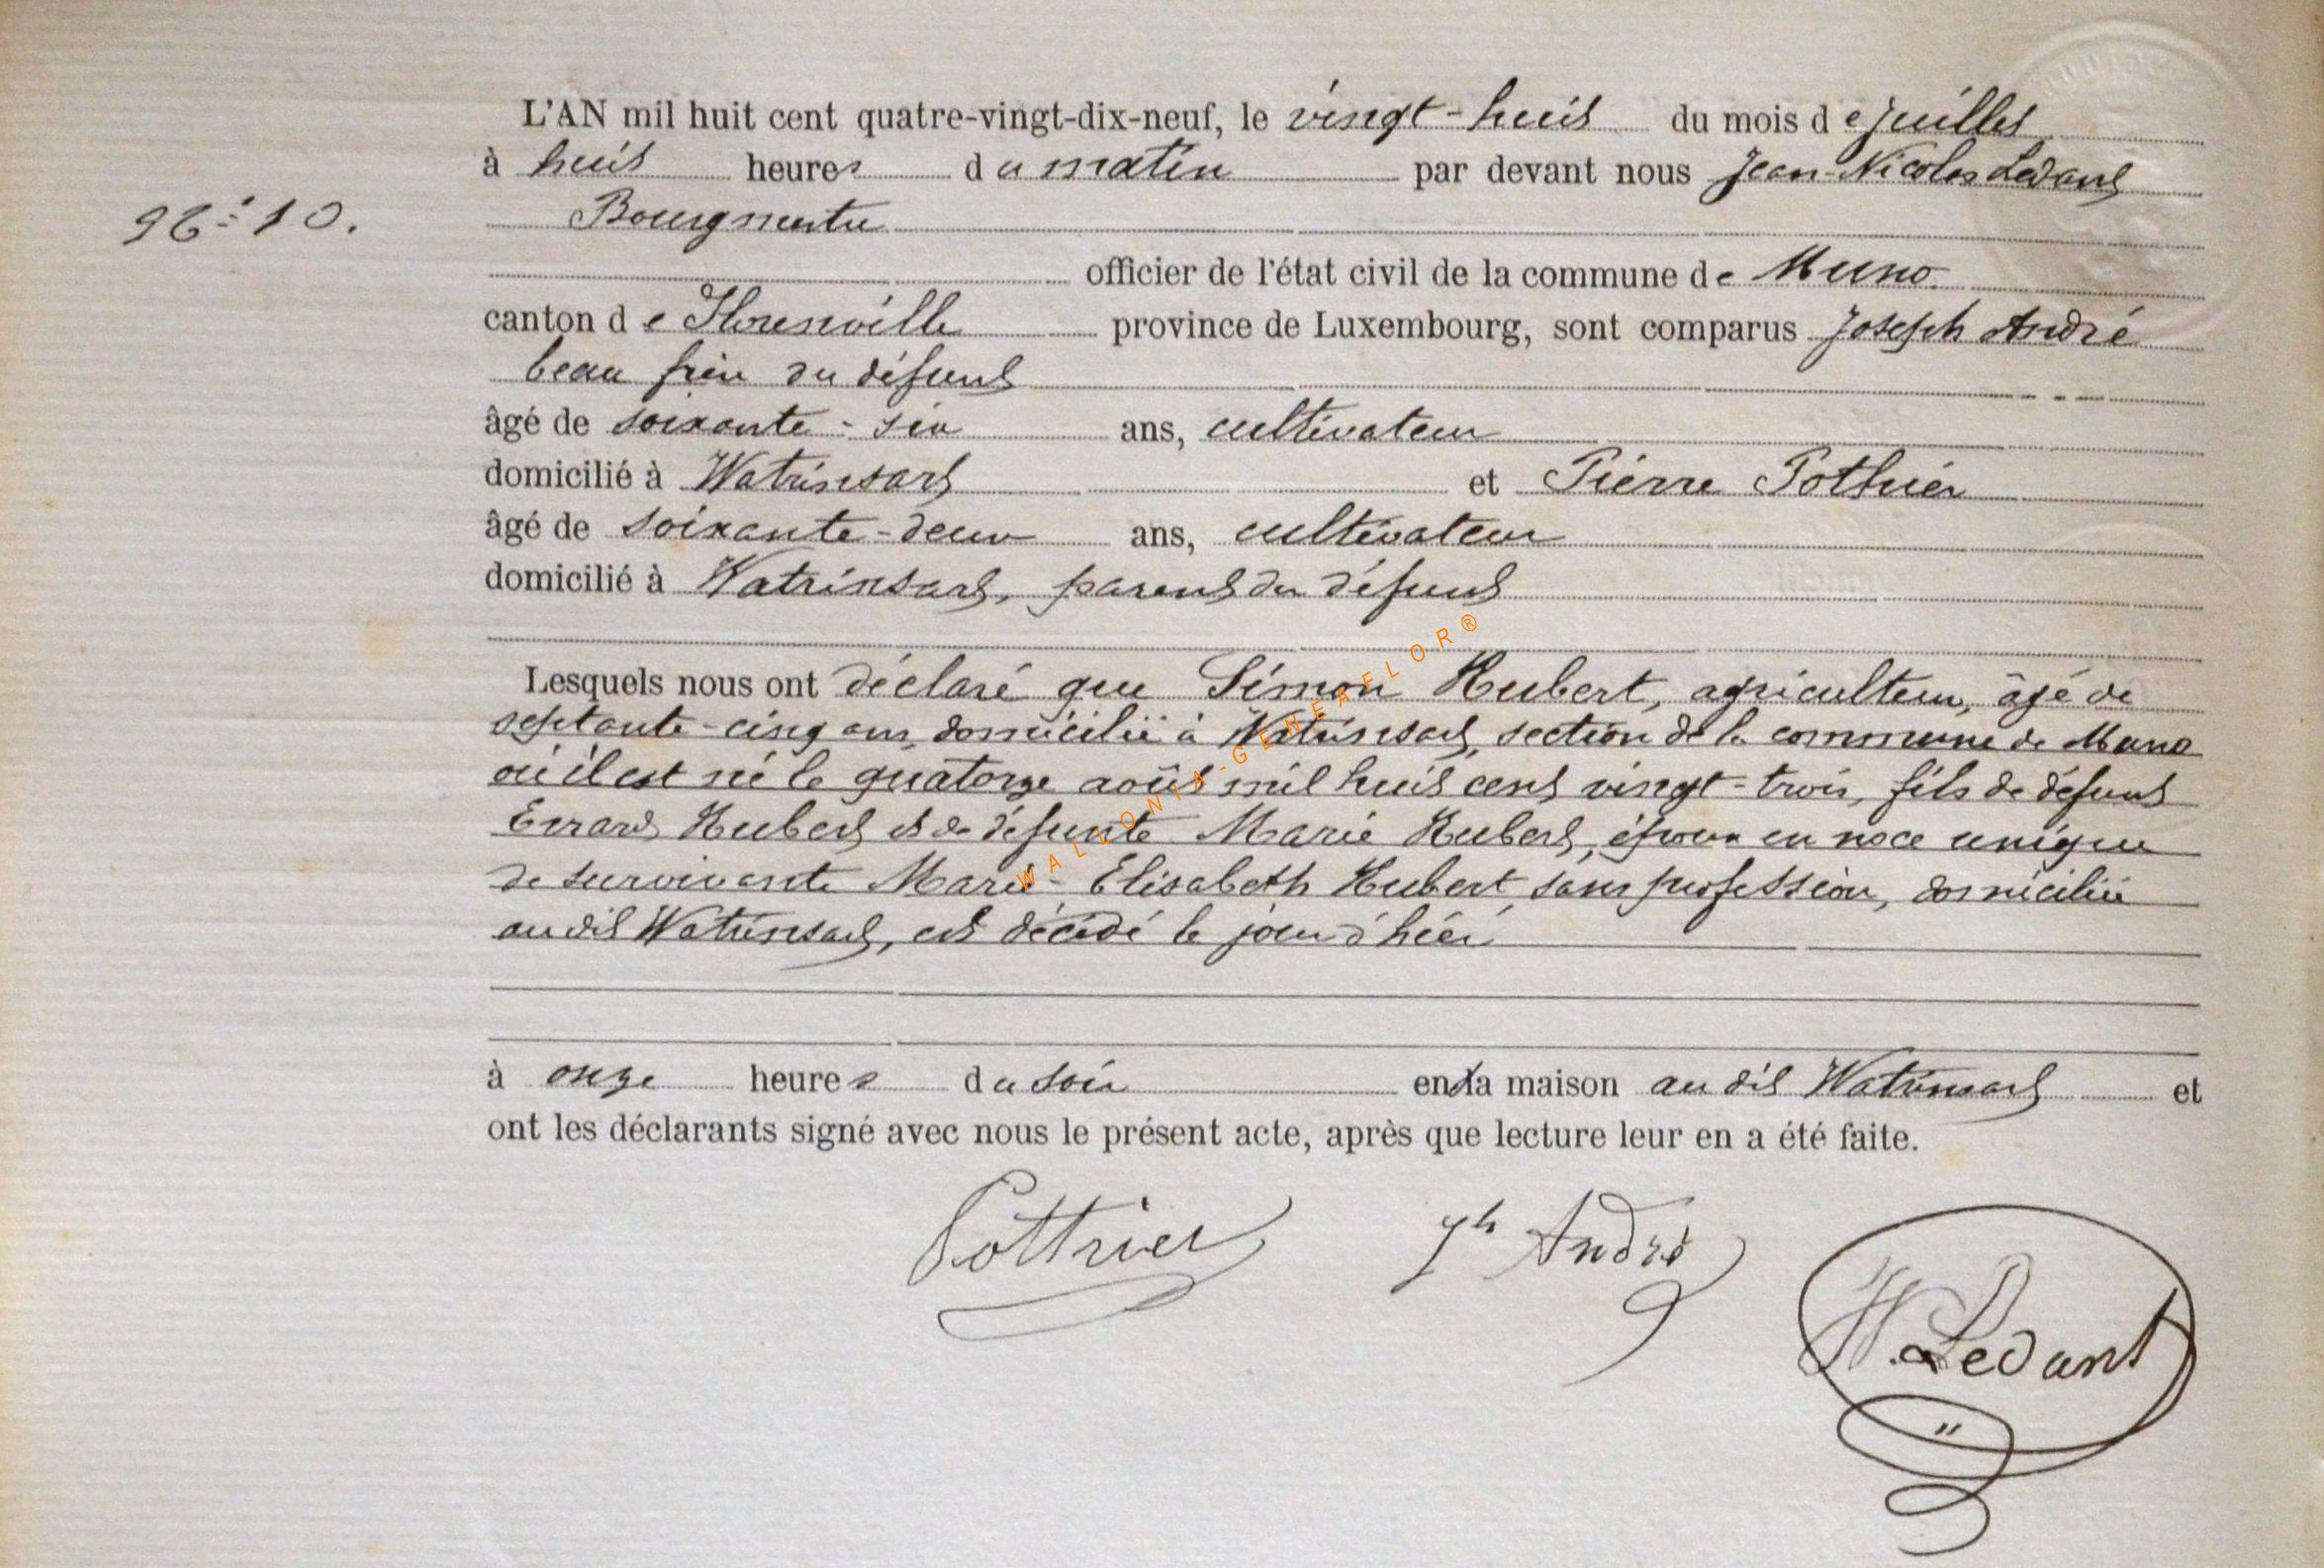 L'AN mil huit cent quatre-vingt-dix-neuf, le vingt-huit du mois de juillet
à huit heures du matin par devant nous Jean-Nicolas Ledant
N° 10. Bourgmestre
officier de l'état civil de la commune de Muno
canton de Florenville province de Luxembourg, sont comparus Joseph André
beau frère du défunt
âgé de soixante-six ans, cultivateur
domicilié à Watrinsart et Pierre Pothier
âgé de soixante-deux ans, cultivateur
domicilié à Watrinsart, parent du défunt
Lesquels nous ont déclaré que Simon Hubert, agriculteur, âgé de
septante-cinq ans, domicilié à Watrinsart, section de la commune de Muno
où il est né le quatorze août mil huit cent vingt-trois, fils de défunt
Errard Hubert et de défunte Marie Hubert, époux en noce unique
de survivante Marie-Elisabeth Hubert sans profession, domiciliée
au dit Watrinsart, est décédé le jour d'hier
à onze heures du soir en sa maison au dit Watrinsart et
ont les déclarants signé avec nous le présent acte, après que lecture leur en a été faite.
Pottrier Jh André N. Ledant
WALLONIA-GENEAFLOR®